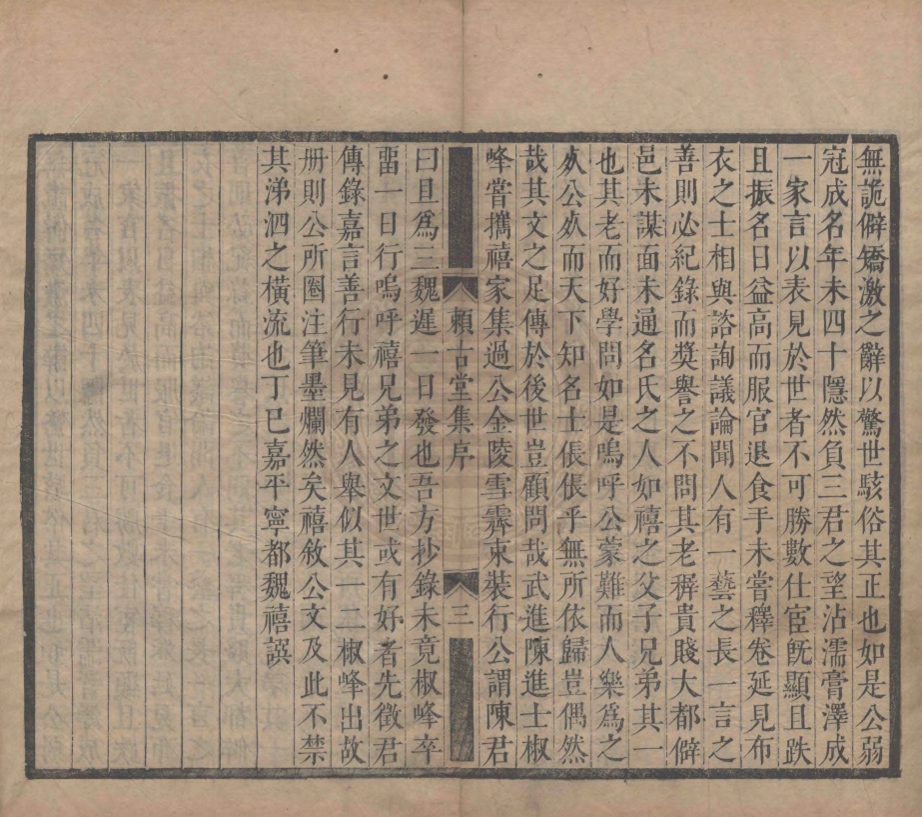 無詭僻矯激之辭以驚世駭俗其正也如是公弱
冠成名年未四十隱然負三君之望沾濡膏澤成
一家言以表見於世者不可勝數仕宦旣顯且跌
且振名日益高而服官退食手未嘗釋卷延見布
衣之士相與諮詢議論聞人有一藝之長一言之
善則必紀錄而獎譽之不問其老穉貴賤大都僻
邑未謀面未通名氏之人如禧之父子兄弟其一
也其老而好學問如是嗚呼公蒙難而人樂爲之
㱙公㱙而天下知名士倀倀乎無所依歸豈偶然
哉其文之足傳於後世豈顧問哉武進陳進士椒
峰嘗攜禧家集過公金陵雪霽束裝行公謂陳君
賴古堂集序 三
曰且爲三魏遲一日發也吾方抄錄未竟椒峰卒
畱一日行嗚呼禧兄弟之文世或有好者先徵君
傳錄嘉言善行未見有人舉似其一二椒峰出故
册則公所圈注筆墨爛然矣禧敘公文及此不禁
其涕泗之橫流也丁巳嘉平寧都魏禧譔